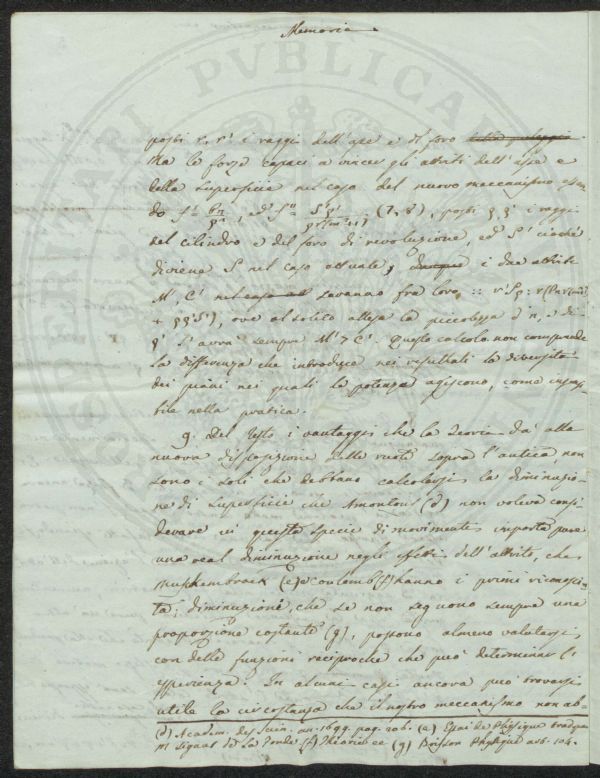 Memoria
posti r, r' i raggi dell'asse e di foro
Ma le forze capaci a vincer gli attriti dell'asse e
della superficie nel caso del nuovo meccanismo essen
do
(7, 8), posti ρ, ρ' i raggi
del cilindro e del foro di rivoluzione, ed S' ciocché
diviene S nel caso attuale, dunque i due attriti
M', C' nel caso saranno fra loro :: 
ove al solito attesa la piccolezza d' n, e di
ρ' si avrà sempre M' > C'. Questo calcolo non comprende
la differenza che introduce nei resultati la diversità
dei piani nei quali le potenze agiscono, come insen
sibile nella pratica.
9. Del resto i vantaggi che la teoria dà alla
nuova disposizione alle ruote sopra l'antica, non
sono i soli che debbano calcolarsi la diminuzio
ne di superficie che Amontons (d) non voleva consi
derare in questa specie di movimenti importa pure
una real diminuzione negli effetti dell'attrito, che
Muschembroek (e) e Coulomb (f) hanno i primi riconosciu
ta; diminuzione, che se non seguono sempre una
proporzione costante (g), possono almeno valutarsi
con delle funzioni reciproche che può determinar l'
esperienza. In alcuni casi ancora può trovarsi
utile la circostanza che il nostro meccanismo non ab-
(d) Academ. des Scien. an. 1699. pag. 206. (e) Essai de Physique
M Sigaud de la Fonde (f) Théorie (g) Brisson Physique art. 104.